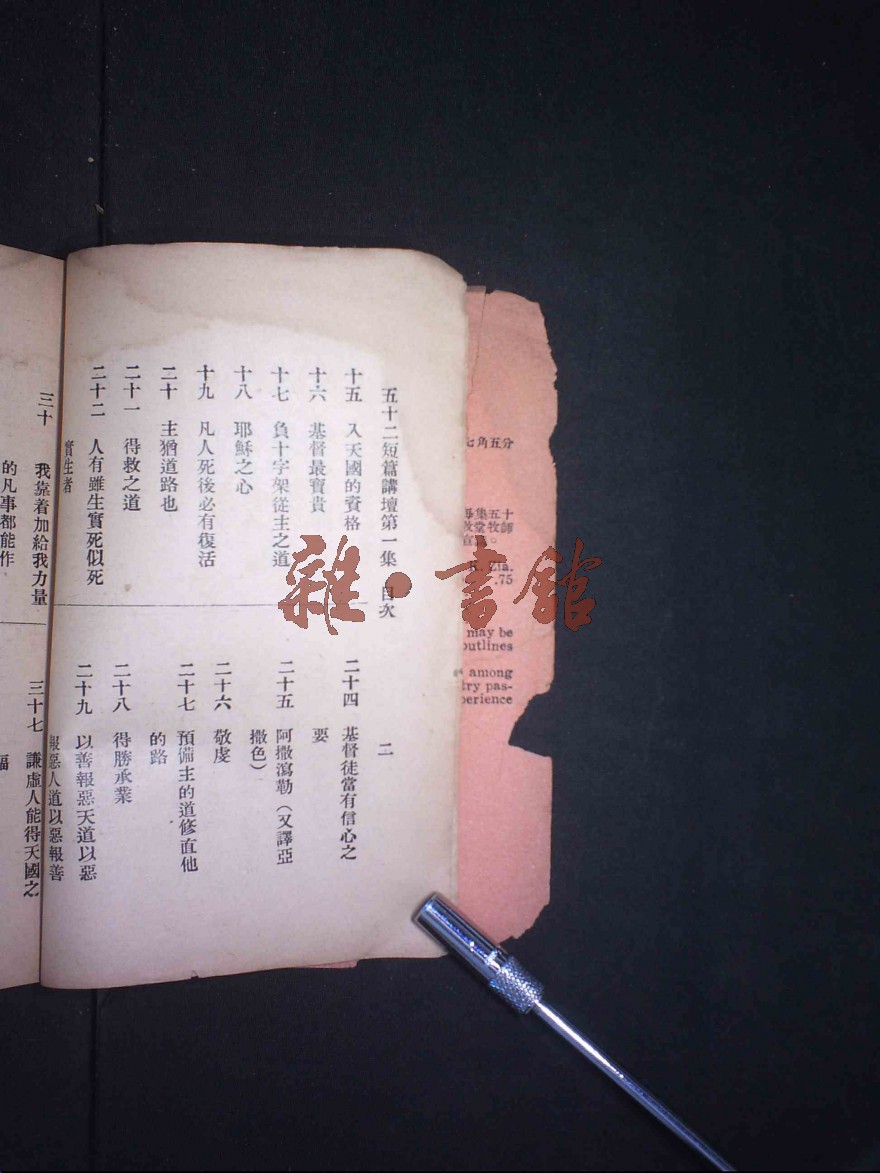 五十二短篇講壇第一集 目次 二
十五 入天國的資格
十六 基督最寶貴
十七 負十字架從主之道
十八 耶穌之心
十九 凡人死後必有復活
二十 主猶道路也
二十一 得救之道
二十二 人有雖生實死似死
實生者
二十四 基督徒當有信心之
要
二十五 阿撒瀉勒（又譯亞
撒色）
二十六 敬虔
二十七 預備主的道修直他
的路
二十八 得勝承業
二十九 以善報惡天道以惡
報惡人道以惡報善
三十 我靠着加給我力量
的凡事都能作
三十七 謙虛人能得天國之
福
七角五分
集五十
堂牧師
Zia.
.75
may be
outlines
among
try pas-
perience
雜·書館